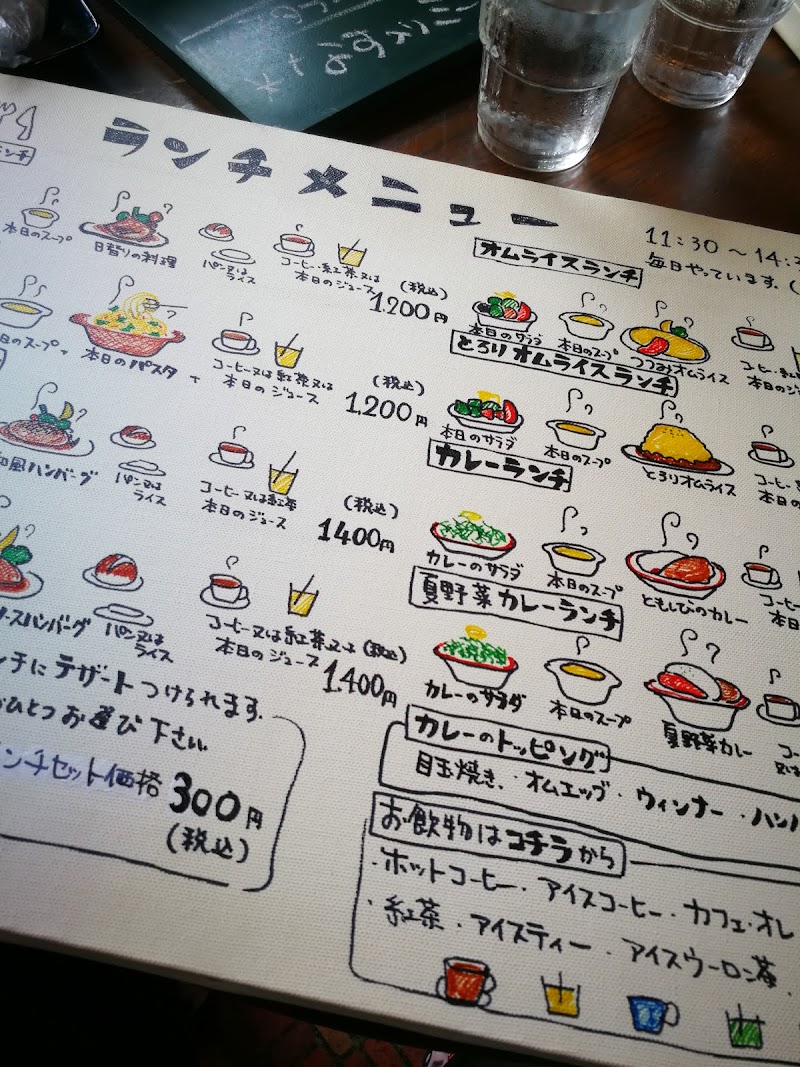 ランチメニュー
11:30〜14:3
毎日やっています。(
ンチ
本日のスープ
日替りの料理
パン又は
ライス
コーヒー・紅茶又は
本日のジュース
(税込)
1.200円
本日のパスタ
コーヒー又は紅茶又は
本日のジュース
(税込)
1.200円
和風ハンバーグ
パン又は
ライス
コーヒー又は紅茶
本日のジュース
(税込)
1400円
ースハンバーグ
パン又は
ライス
コーヒー又は紅茶又は
本日のジュース
(税込)
1.400円
ンチにデザートつけられます。
ひとつお選び下さい
ンチセット価格 300円
(税込)
オムライスランチ
本日のサラダ
本日のスープ
つつみオムライス
とろりオムライスランチ
本日のサラダ
本日のスープ
とろりオムライス
カレーランチ
カレーのサラダ
本日のスープ
ともしびのカレー
夏野菜カレーランチ
カレーのサラダ
本日のスープ
夏野菜カレー
カレーのトッピング
目玉焼き・オムエッグ・ウィンナー・ハン
お飲物はコチラから
・ホットコーヒー・アイスコーヒー・カフェ・オレ
・紅茶・アイスティー・アイスウーロン茶・